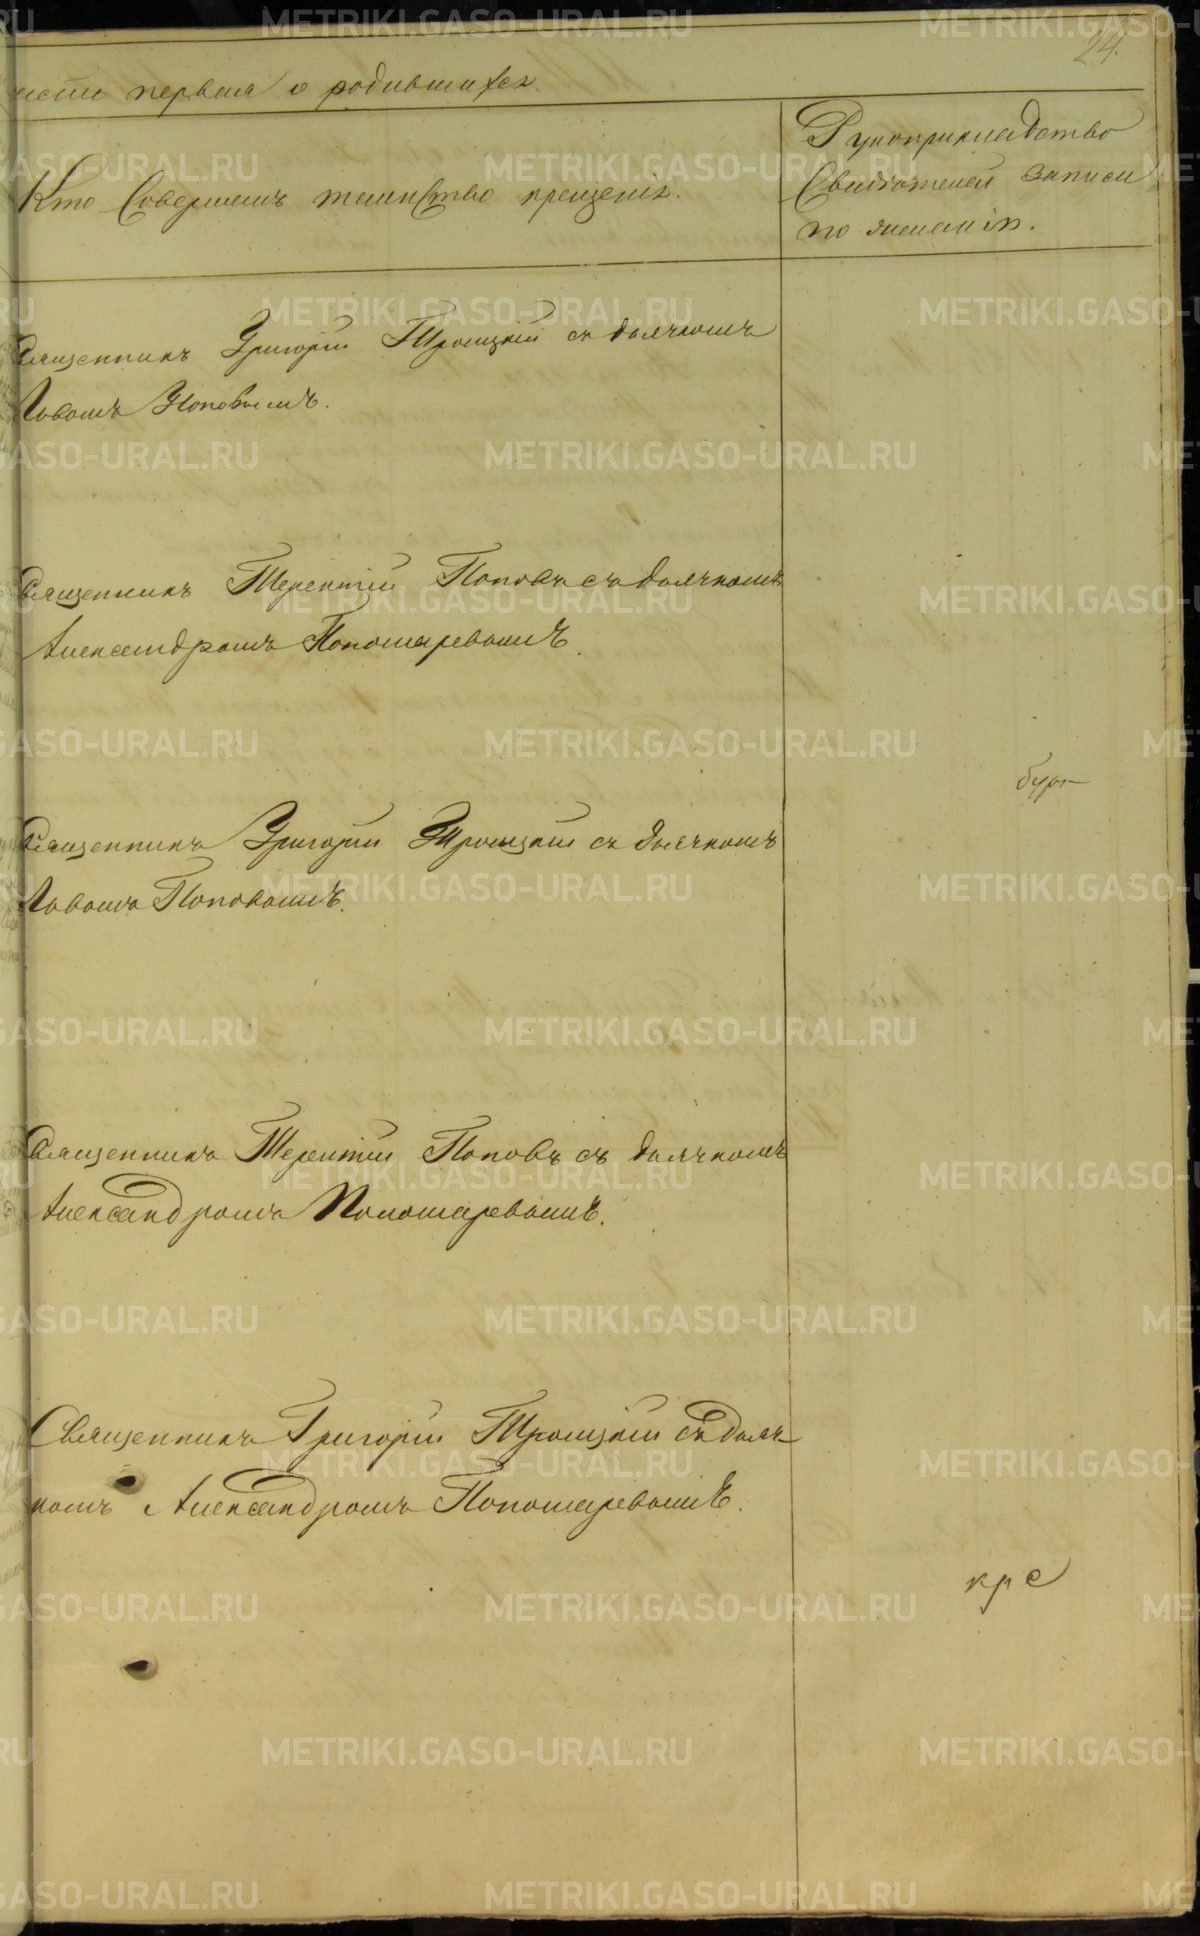 24.
асть первая о родившихся.
Кто Совершалъ таинство крещенія.
Рукоприкладство
Свидѣтелей записи
по желанію.
Священникъ Григорій Троицкій съ дьячкомъ
Львомъ Поповымъ.
Священникъ Терентій Поповъ съ дьячкомъ
Александромъ Пономаревымъ.
бур
Священникъ Григорій Троицкій съ дьячкомъ
Львомъ Поповымъ.
Священникъ Терентій Поповъ съ дьячкомъ
Александромъ Пономаревымъ.
Священникъ Григорій Троицкій съ дьяч
комъ Александромъ Пономаревымъ.
кре
METRIKI.GASO-URAL.RU